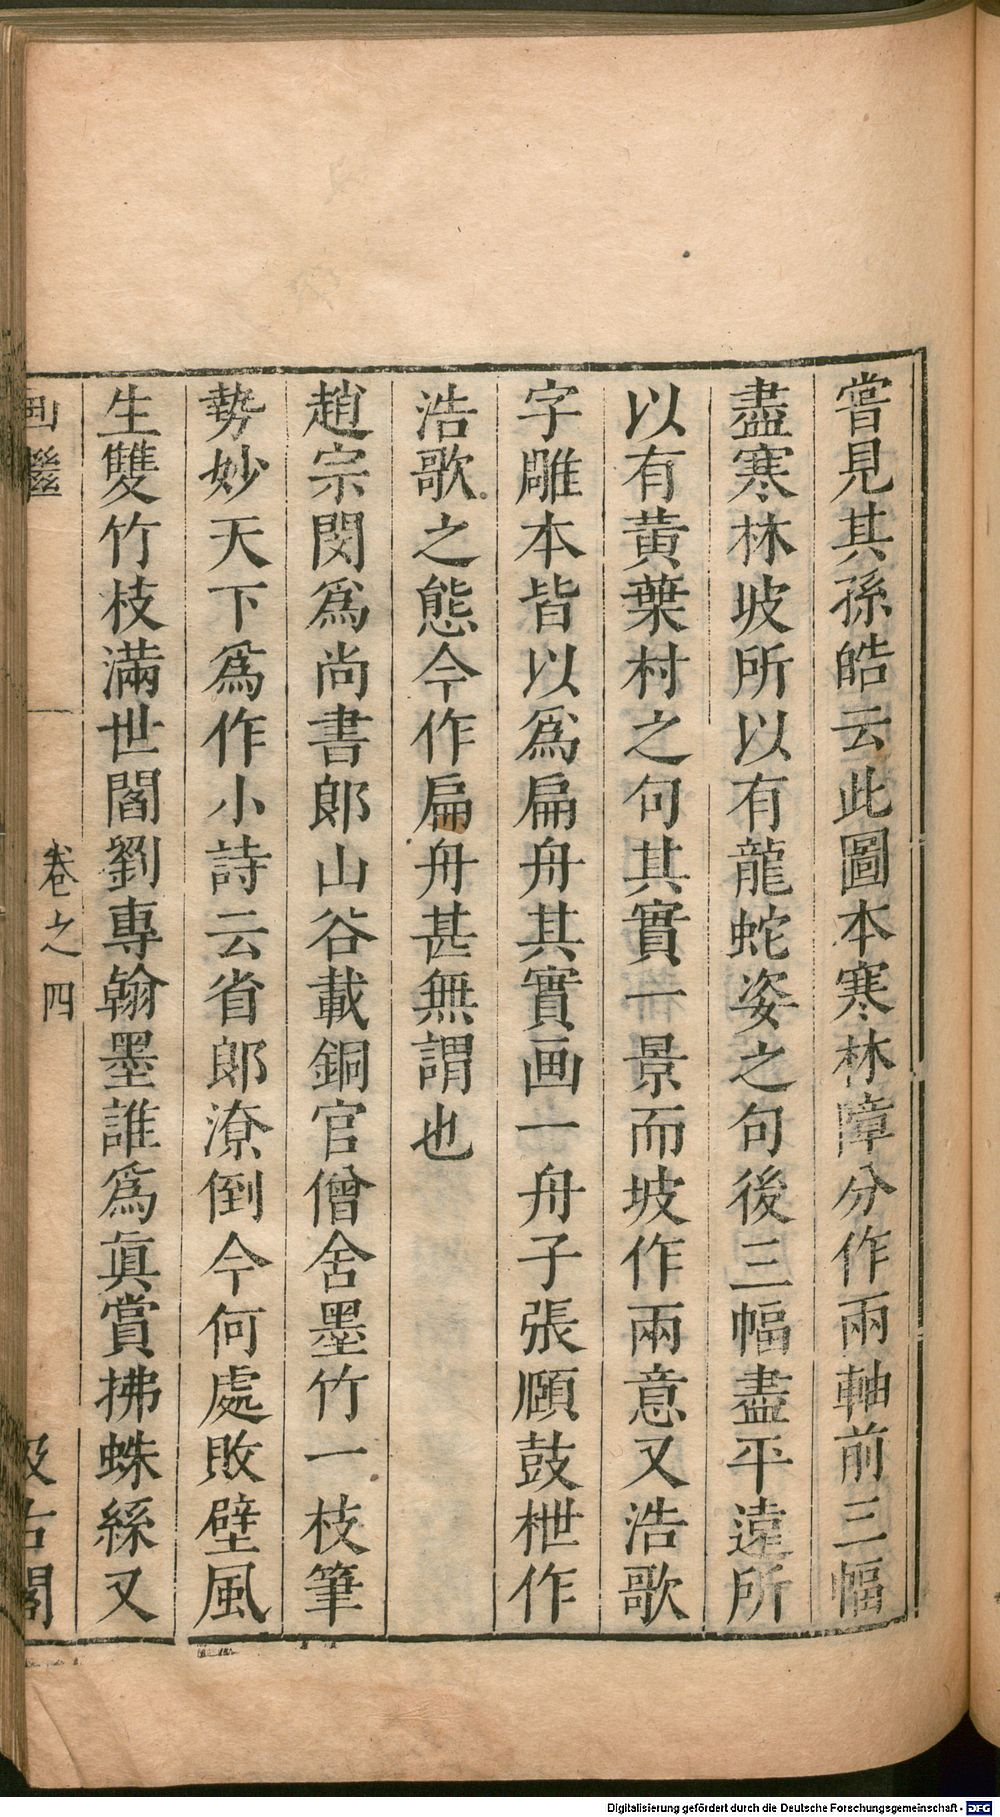 嘗見其孫皓云此圖本寒林障分作兩軸前三幅
盡寒林坡所以有龍蛇姿之句後三幅盡平遠所
以有黄葉村之句其實一景而坡作兩意又浩歌
字雕本皆以爲扁舟其實画一舟子張頥鼓枻作
浩歌之態今作扁舟甚無謂也
趙宗閔爲尚書郎山谷載銅官僧舍墨竹一枝筆
勢妙天下爲作小詩云省郎潦倒今何處敗壁風
生雙竹枝滿世閣劉專翰墨誰爲真賞拂蛛絲又
画繼 卷之四 汲古閣
Digitalisierung gefördert durch die Deutsche Forschungsgemeinschaft - DFG